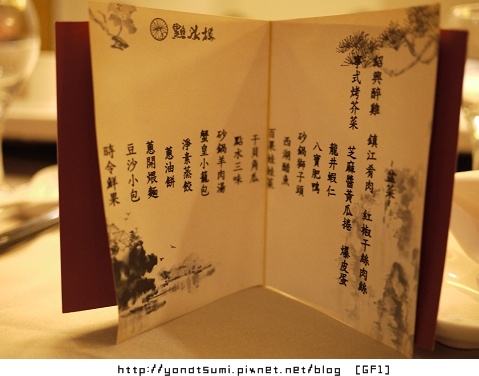 盆菜
紹興醉雞 鎮江肴肉 紅椒干絲肉絲
寧式烤芥菜 芝麻醬黃瓜捲 爆皮蛋
龍井蝦仁
八寶肥鴨
砂鍋獅子頭
西湖醋魚
百果娃娃菜
干貝角瓜
點水三味
砂鍋羊肉湯
蟹皇小籠包
淨素蒸餃
蔥油餅
蔥開煨麵
豆沙小包
時令鮮果
點水樓
http://yondtsumi.pixnet.net/blog [GF1]